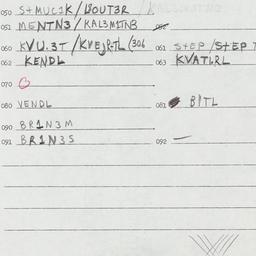 050 S+MUC1K/WOUT3R
051 MENTN3/RAL3MITN3 052
060 KVU.3T/KVEJRTL (306 061 STEP/STEPT
062 KENDL 063 KVATLRL
070
080 VENDL 081 BITL
090 BR1N3M
091 BR1N3S 092 —